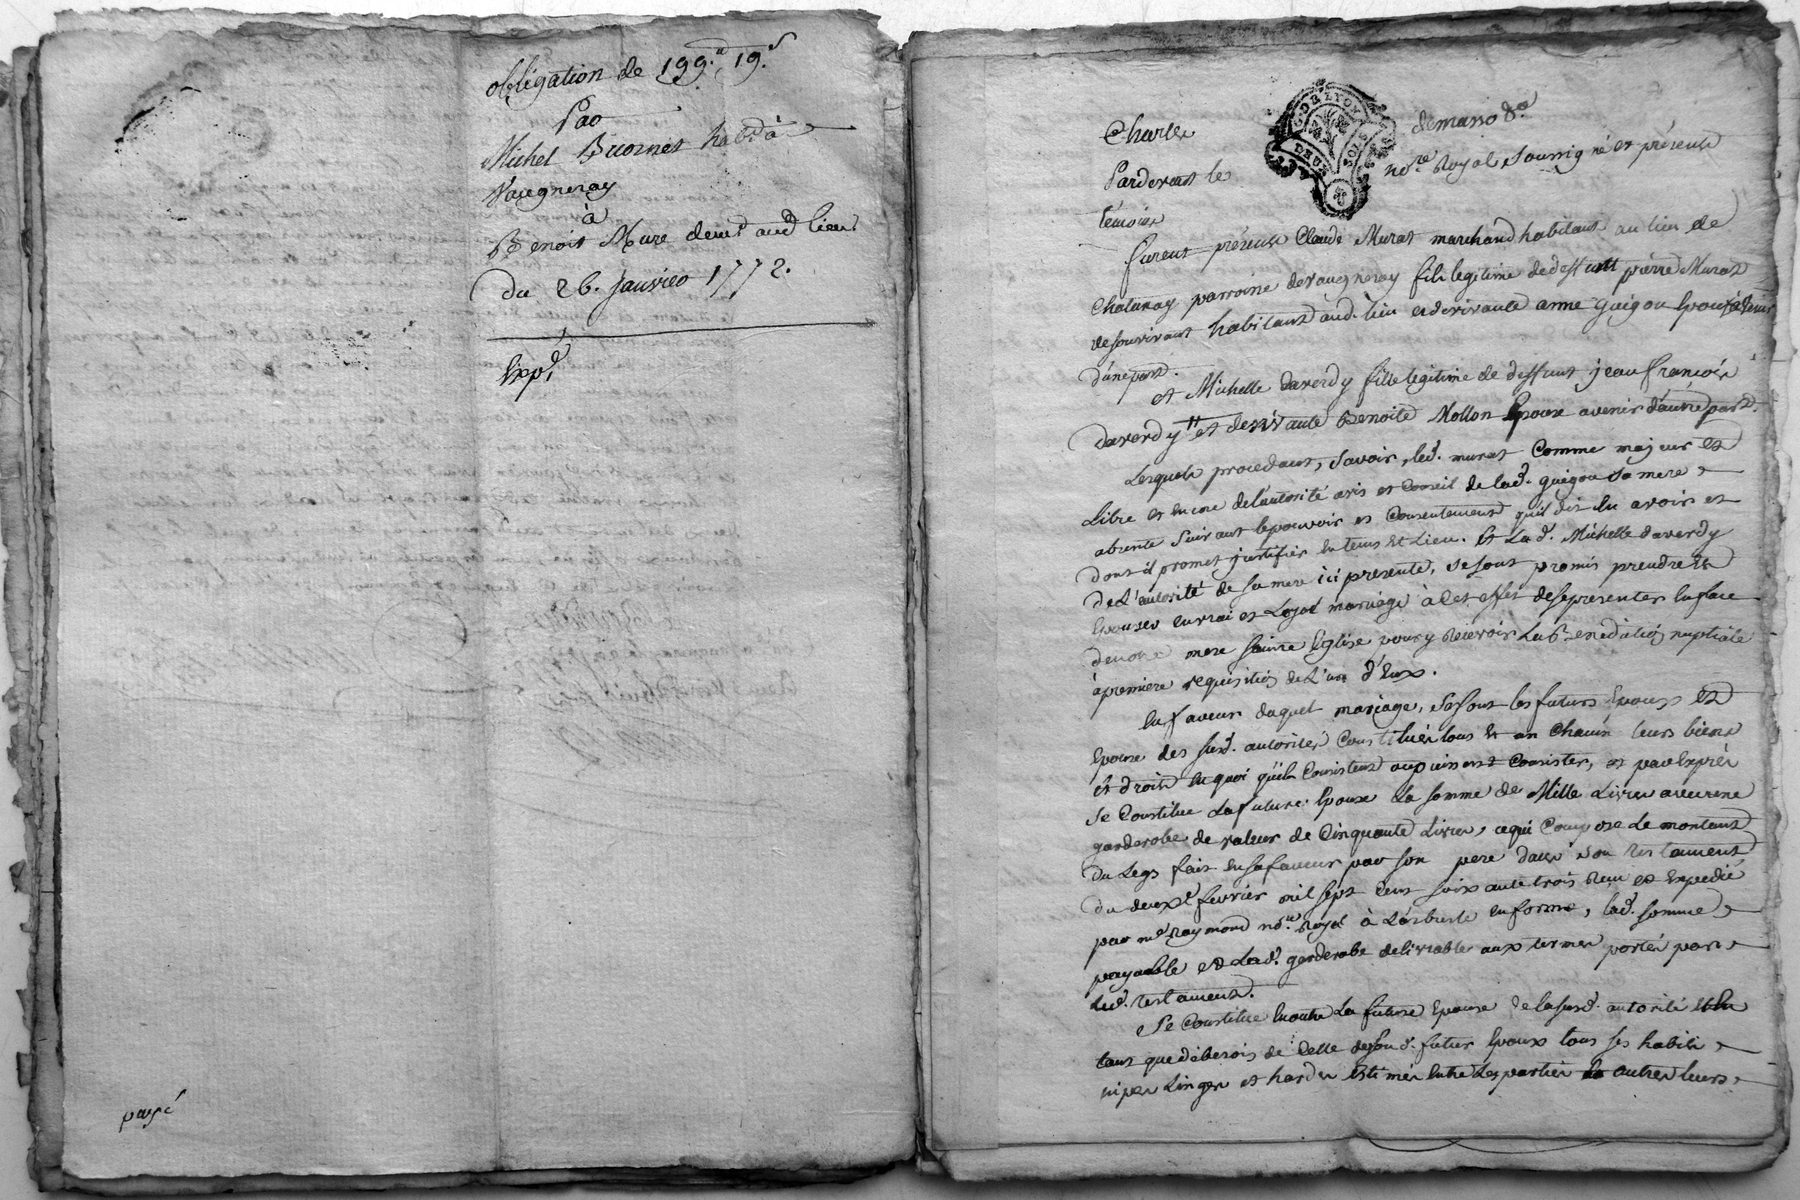 obligation de 199.ᵗᵗ 19.ˢ
Par
Michel habt à
Vaugneray
à
Benoit Mure demt aud lieu
Du 26. janvier 1772.
Expé
payé
G. DE LYON
DEUX SOLS
Charle demano
Pardevant le no.re Royal soussigné et présents
témoins
furent présents Claude Murat marchand habitant au lieu de
Chatanay parroisse de vaugneray fils legitime de deffunt pierre Murat
de son vivant habitant aud. lieu et de vivante anne guigou Epoux avenir
d'une part.
et Michelle daverdy fille legitime de deffunt jean francois
daverdy et de vivante Benoite Mollon Epouse avenir d'autre part.
Lesquels procedant, savoir, led. murat Comme majeur et
Libre et encore de l'autorité avis et Conseil de lad. guigou sa mere
absente suivant le pouvoir et Consentement qu'il dit en avoir et
dont il promet justifier en tems et Lieu. Et La d. Michelle daverdy
De L'autorité de sa mere ici presente, se sont promis prendre et
Epouser en vrai et Loyal mariage à Cet effet de se presenter en face
de notre mere sainte Eglise pour y recevoir La Benediction nuptiale
à premiere requisition de L'un d'Eux.
En faveur duquel mariage, se sont les futurs Epoux et
Epouse des susd. autorités Constitués tous et un Chacun leurs biens
et droits en quoi qu'ils Consistent ou puissent Consister, et par Exprès
se Constitue La future Epouse La somme de Mille Livres avec une
garderobe de valeur de Cinquante Livres, ce qui Compose Le montant
Du Legs fait en sa faveur par son pere dans son testament
du deuxe. fevrier mil sept Cent soixante trois Reçu et Expedié
par me Raymond no.re Royal à Larbresle en forme, lad. somme
payable et Lad. garderobe delivrable aux termes portés par
Led. testament.
Se Constitue En outre La future Epouse de la susd. autorité et En
tant que de besoin de Celle de son d. futur Epoux tous ses habits
nipes Linges et hardes Estimés Entre Les parties autres leurs